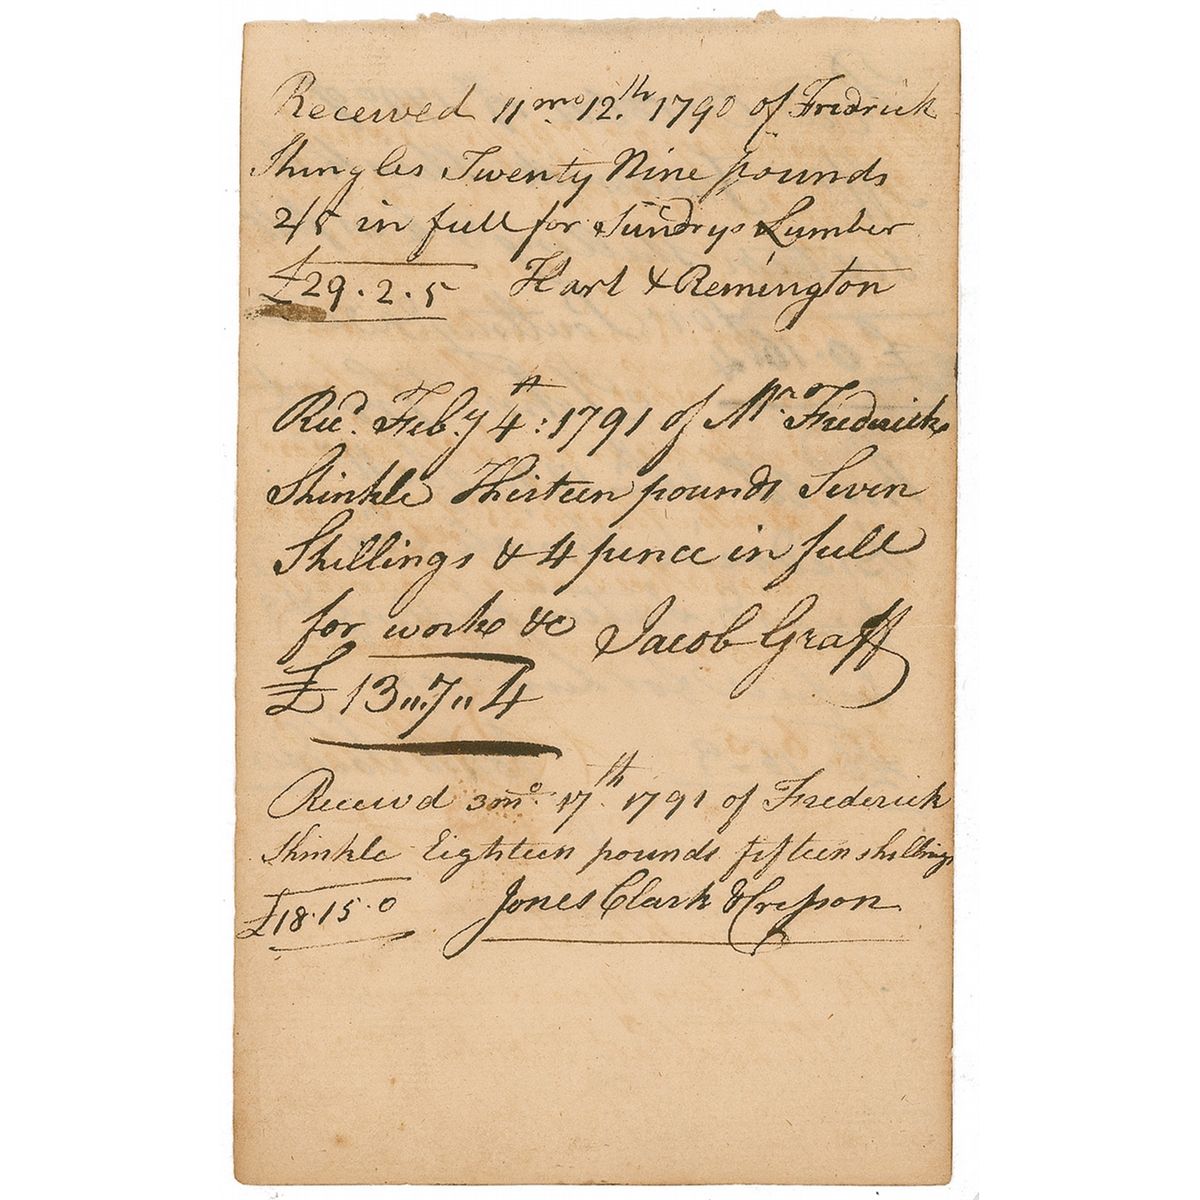 Received 11mo 12th 1790 of Fredrick
Shingles Twenty Nine pounds
2/5 in full for Sundrys Lumber
£29.2.5 Hart & Remington
Recd. Feby 4th: 1791 of Mr. Frederick
Shinkle Thirteen pounds Seven
Shillings & 4 pence in full
for work &c Jacob Graff
£13"7"4
Receivd 3mo. 17th 1791 of Frederick
Shinkle Eighteen pounds fifteen shillings
£18.15.0 Jones Clark & Cresson